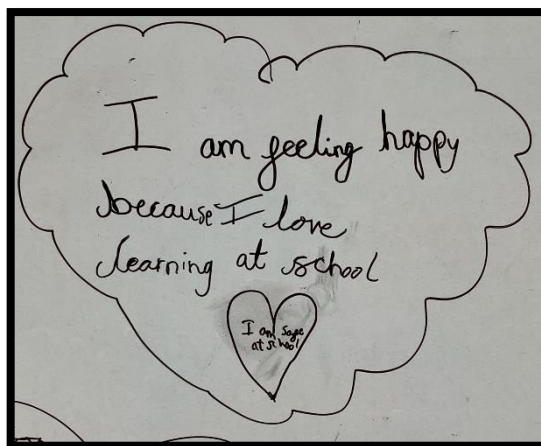 I am feeling happy
because I love
learning at school
I am safe
at school